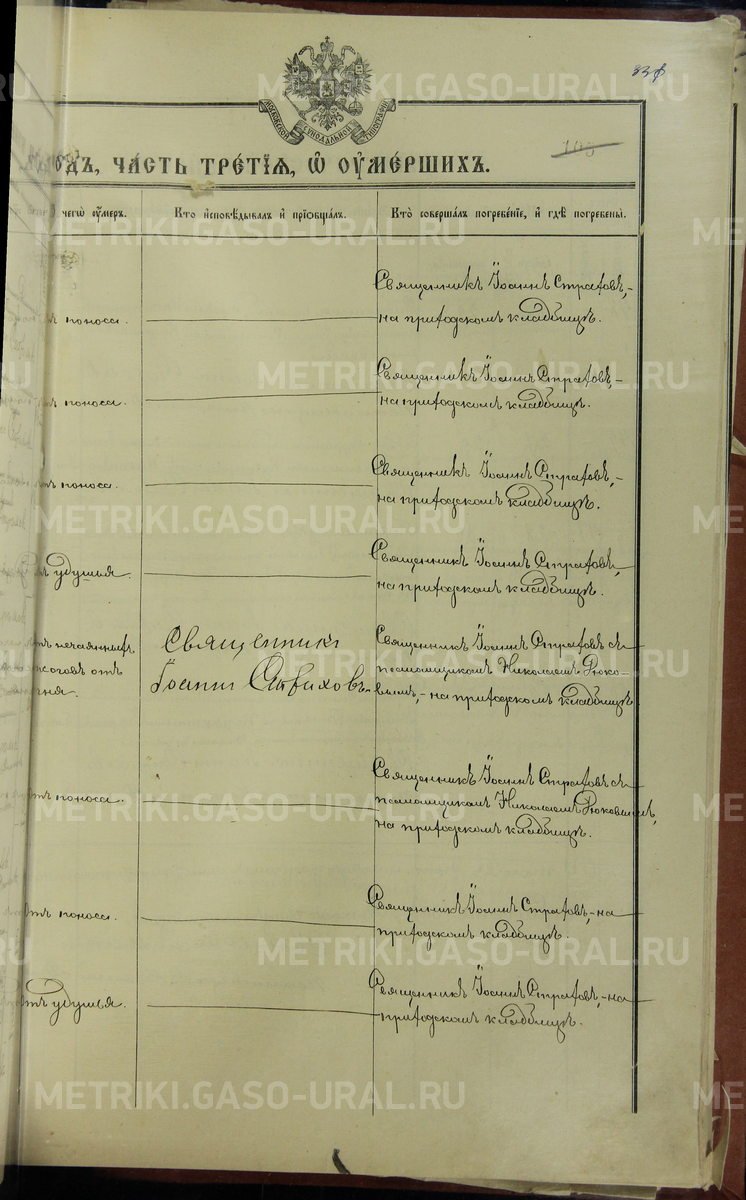 МОСКОВСКОЙ СѴНОДАЛЬНОЙ ТИПОГРАФІИ
ОДЪ, ЧА́СТЬ ТРЕ́ТІѦ, Ѡ҆ ОУ҆МЕ́РШИХЪ.
чегѡ̀ оу҆́меръ.
Кто̀ и҆сповѣ́дывалъ и҆ прїѡбща́лъ.
Кто̀ соверша́лъ погребе́нїе, и҆ гдѣ̀ погребены̀.
поноса.
Священникъ Іоаннъ Страховъ,-
на приходскомъ кладбищѣ.
поноса.
Священникъ Іоаннъ Страховъ,-
на приходскомъ кладбищѣ.
поноса.
Священникъ Іоаннъ Страховъ,-
на приходскомъ кладбищѣ.
удушья.
Священникъ Іоаннъ Страховъ,
на приходскомъ кладбищѣ.
нечаянныхъ
жоговъ отъ
гня.
Священникъ
Іоаннъ Страховъ.
Священникъ Іоаннъ Страховъ съ
псаломщикомъ Николаемъ
на приходскомъ кладбищѣ.
отъ поноса.
Священникъ Іоаннъ Страховъ съ
псаломщикомъ Николаемъ
на приходскомъ кладбищѣ.
отъ поноса.
Священникъ Іоаннъ Страховъ,-на
приходскомъ кладбищѣ.
отъ удушья.
Священникъ Іоаннъ Страховъ,-на
приходскомъ кладбищѣ.
METRIKI.GASO-URAL.RU